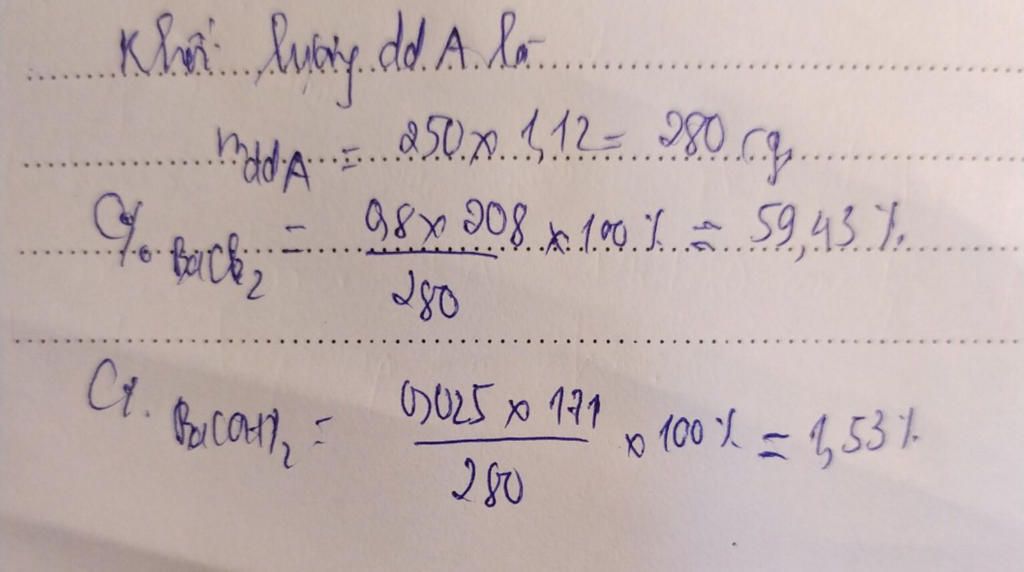 Khối lượng dd A là
m dd A = 250 x 1,12 = 280 (g)
C% BaCl2 = 0,8 x 208 / 280 x 100% = 59,43%
C%. Ba(OH)2 = 0,025 x 171 / 280 x 100% = 1,53%